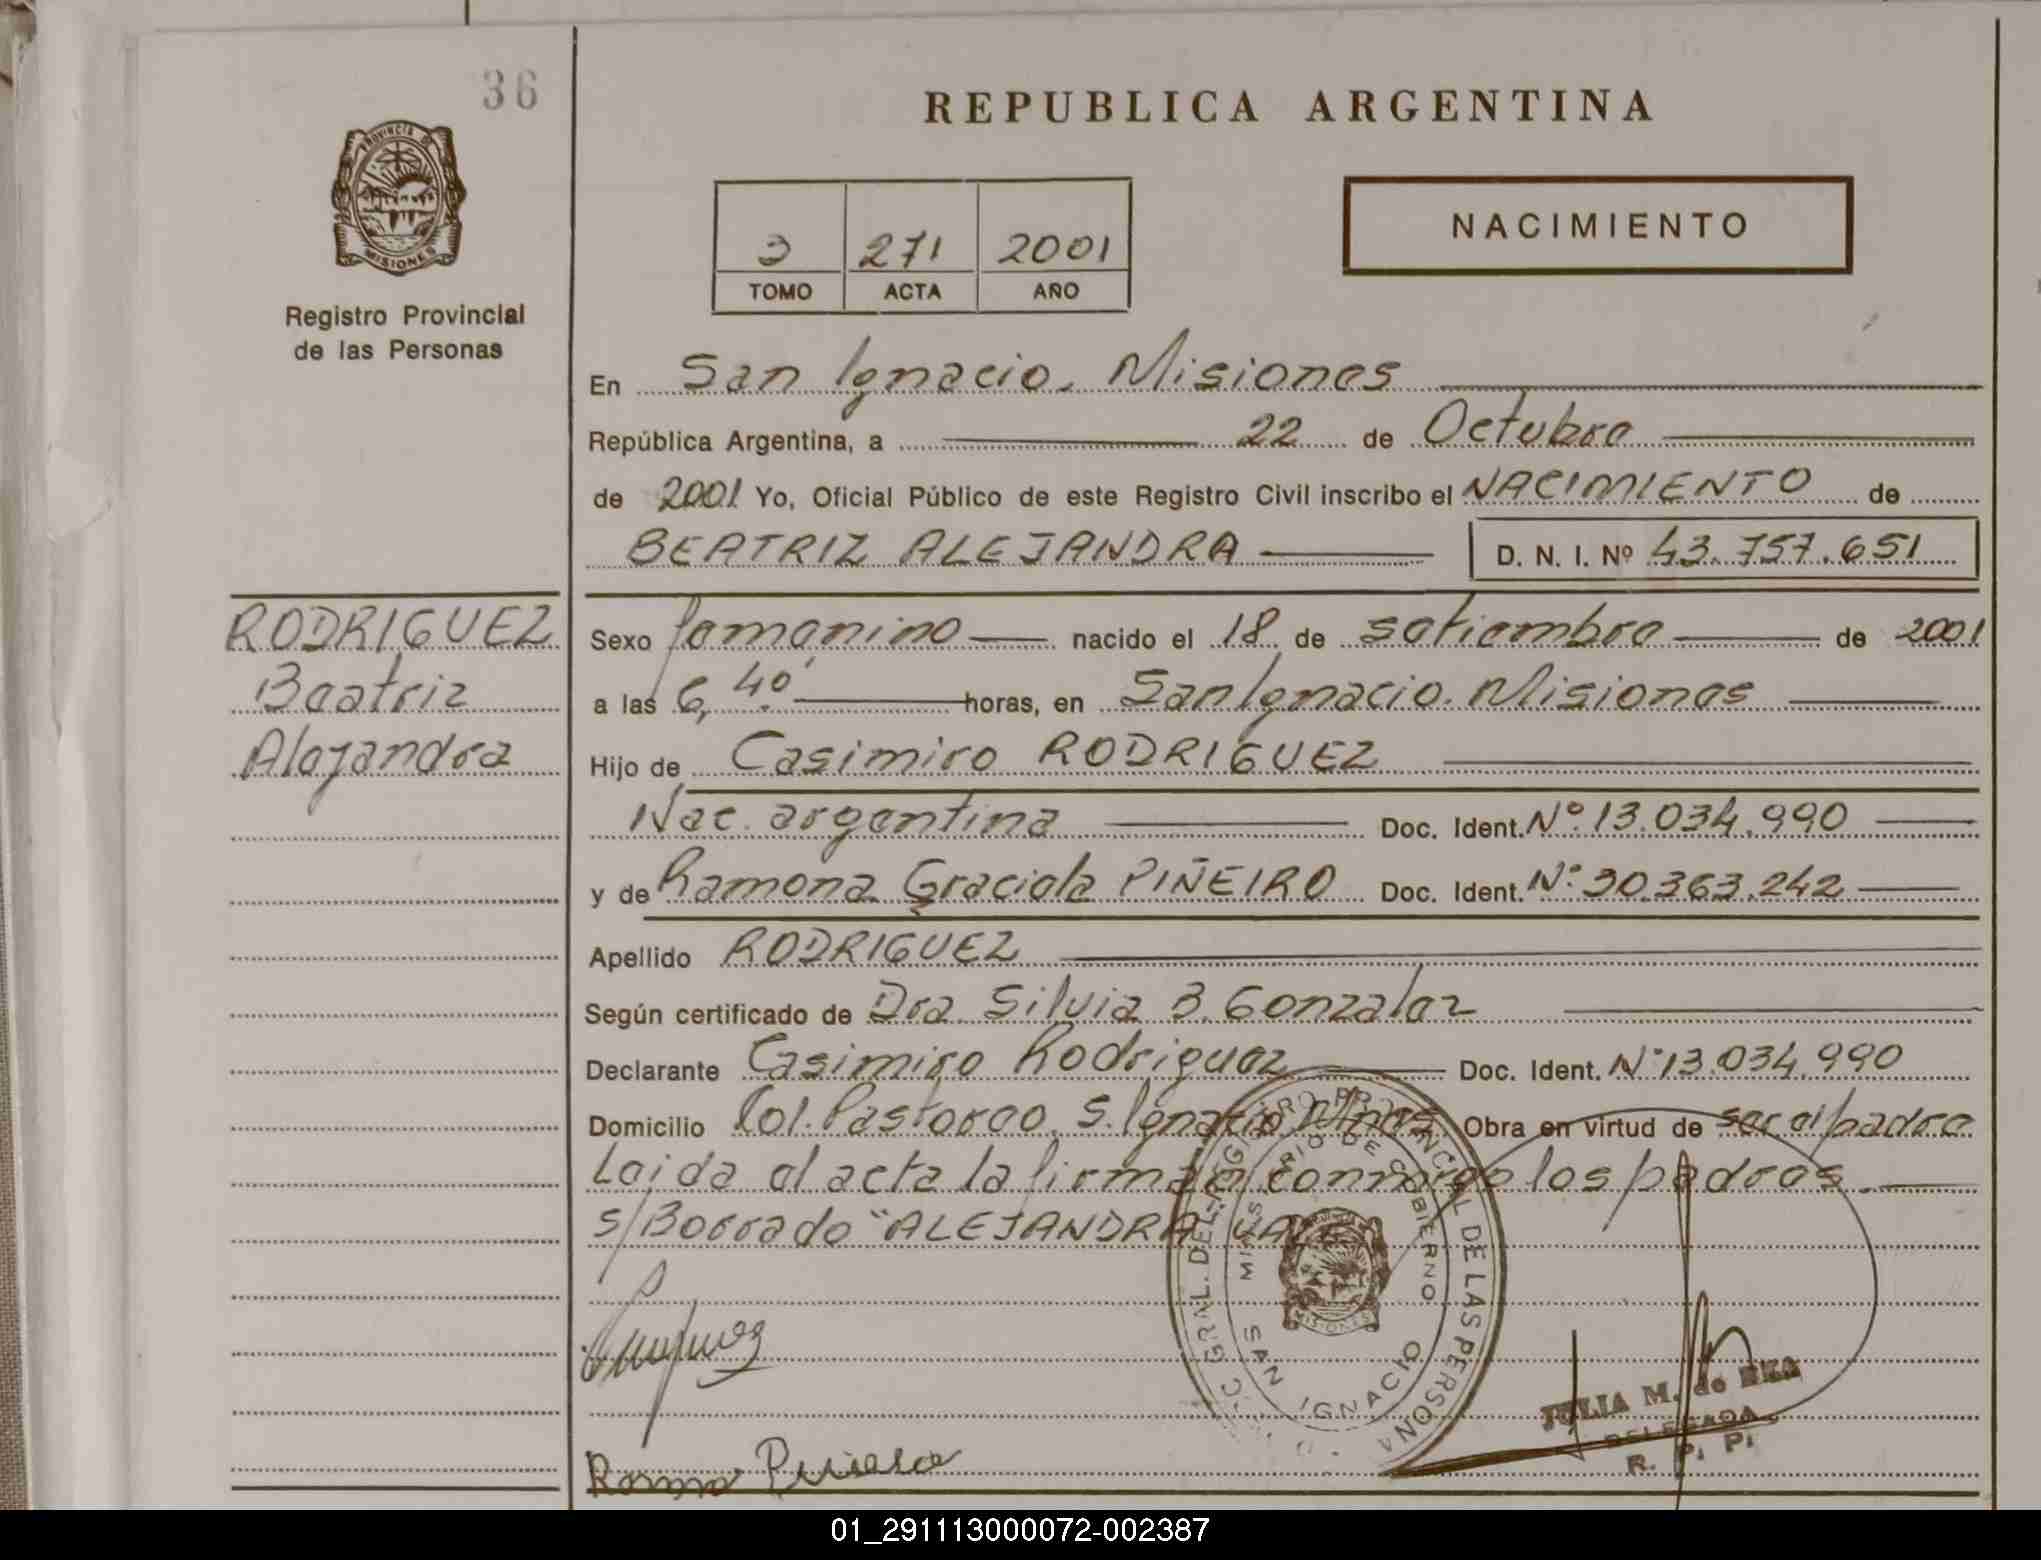 36
REPUBLICA ARGENTINA
PROVINCIA DE
MISIONES
Registro Provincial
de las Personas
3 271 2001
TOMO ACTA AÑO
NACIMIENTO
En San Ignacio. Misiones
República Argentina, a 22 de Octubre
de 2001 Yo, Oficial Público de este Registro Civil inscribo el NACIMIENTO de
BEATRIZ ALEJANDRA D. N. I. Nº 43.757.651
RODRIGUEZ
Beatriz
Alejandra
Sexo femenino nacido el 18 de setiembre de 2001
a las 6,40' horas, en San Ignacio. Misiones
Hijo de Casimiro RODRIGUEZ
Nac. argentina Doc. Ident. Nº 13.034.990
y de Ramona Graciela PIÑEIRO Doc. Ident. Nº 30.363.242
Apellido RODRIGUEZ
Según certificado de Dra Silvia B. Gonzalez
Declarante Casimiro Rodriguez Doc. Ident. Nº 13.034.990
Domicilio Col. Pastoreo. S. Ignacio Mnes. Obra en virtud de ser el padre
Leida el acta la firman conmigo los padres.
s/Borrado "ALEJANDRA" VALE
GRAL. DEL REGISTRO PROVINCIAL DE LAS PERSONAS
MINISTERIO DE GOBIERNO
MISIONES
SAN IGNACIO
JULIA M. de
DELEGADA
R. P. P.
01_291113000072-002387